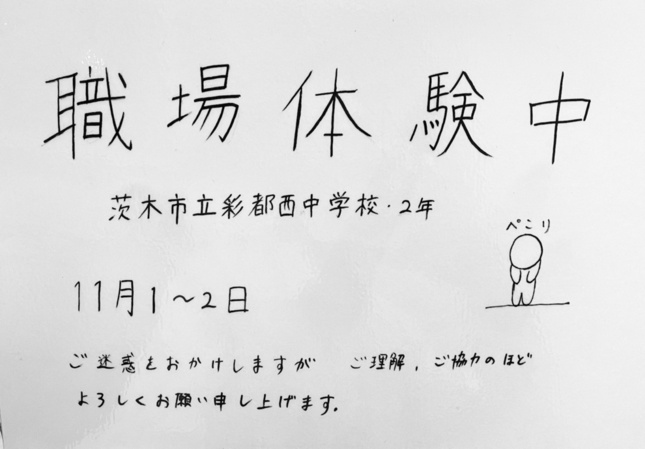 職場体験中
茨木市立彩都西中学校・2年
ぺこり
11月1～2日
ご迷惑をおかけしますが ご理解、ご協力のほど
よろしくお願い申し上げます。